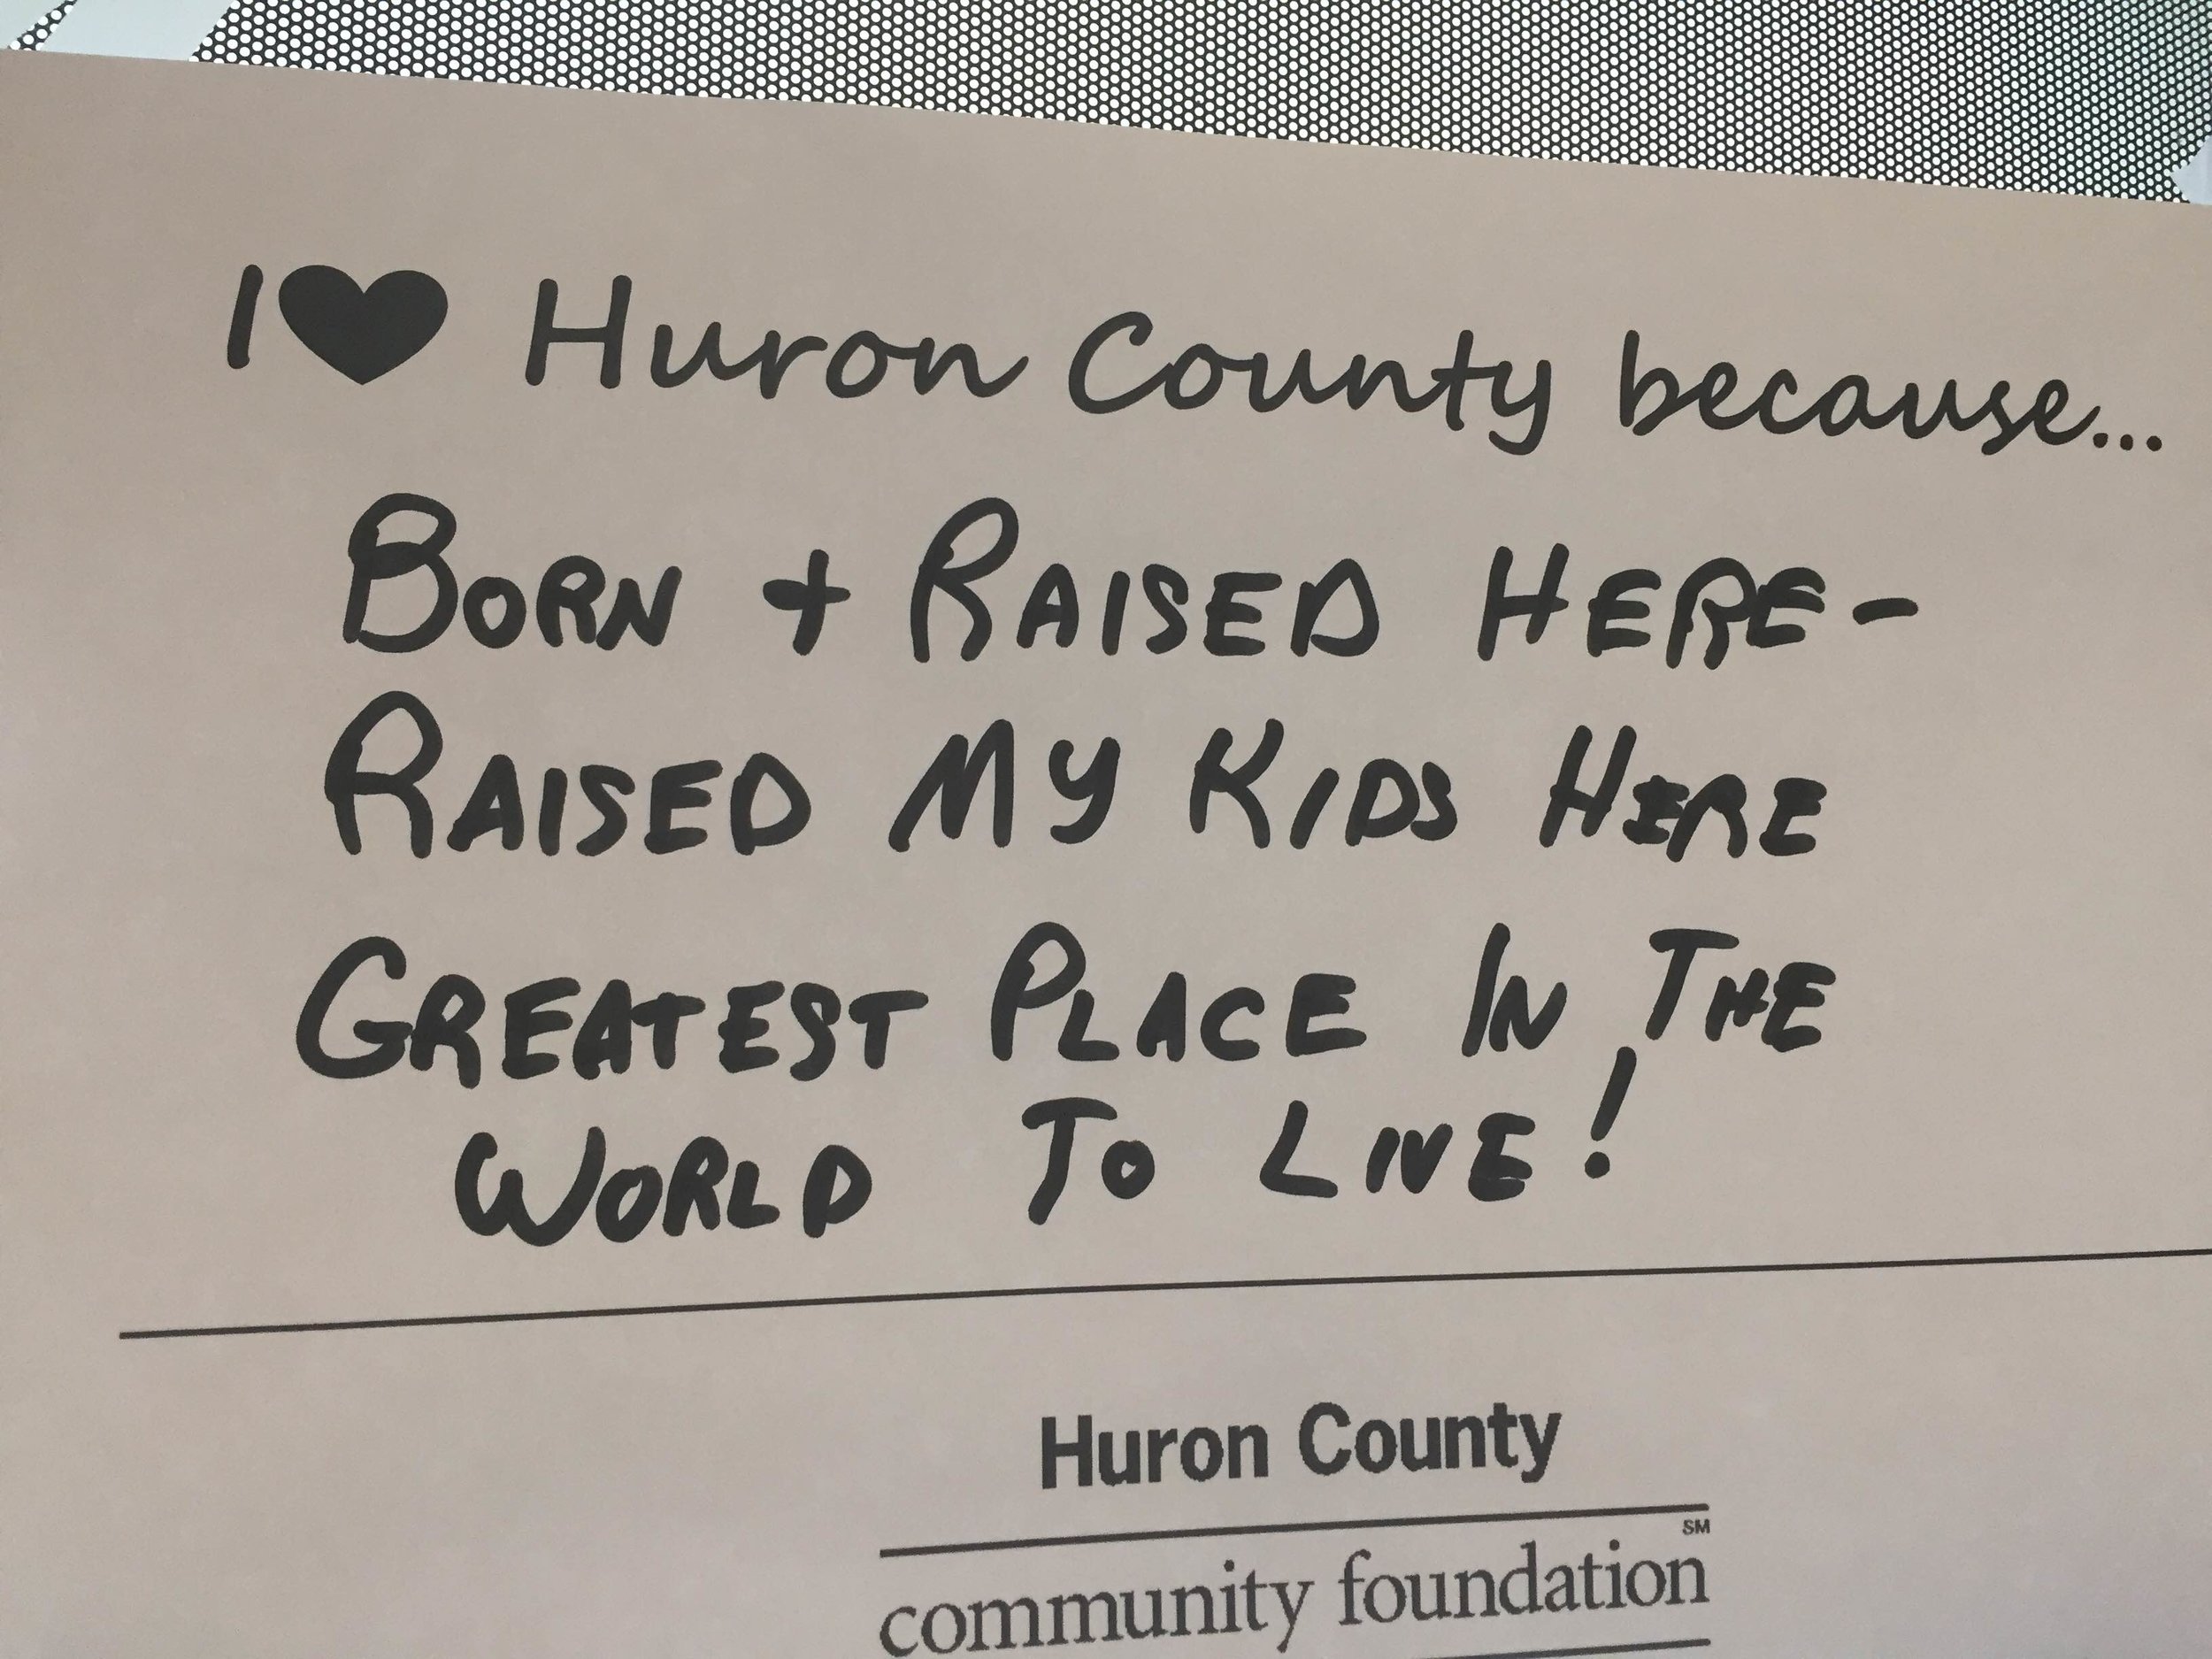 I♥ Huron County because...
BORN + RAISED HERE-
RAISED MY KIDS HERE
GREATEST PLACE IN THE
WORLD TO LIVE!
Huron County
community foundation℠